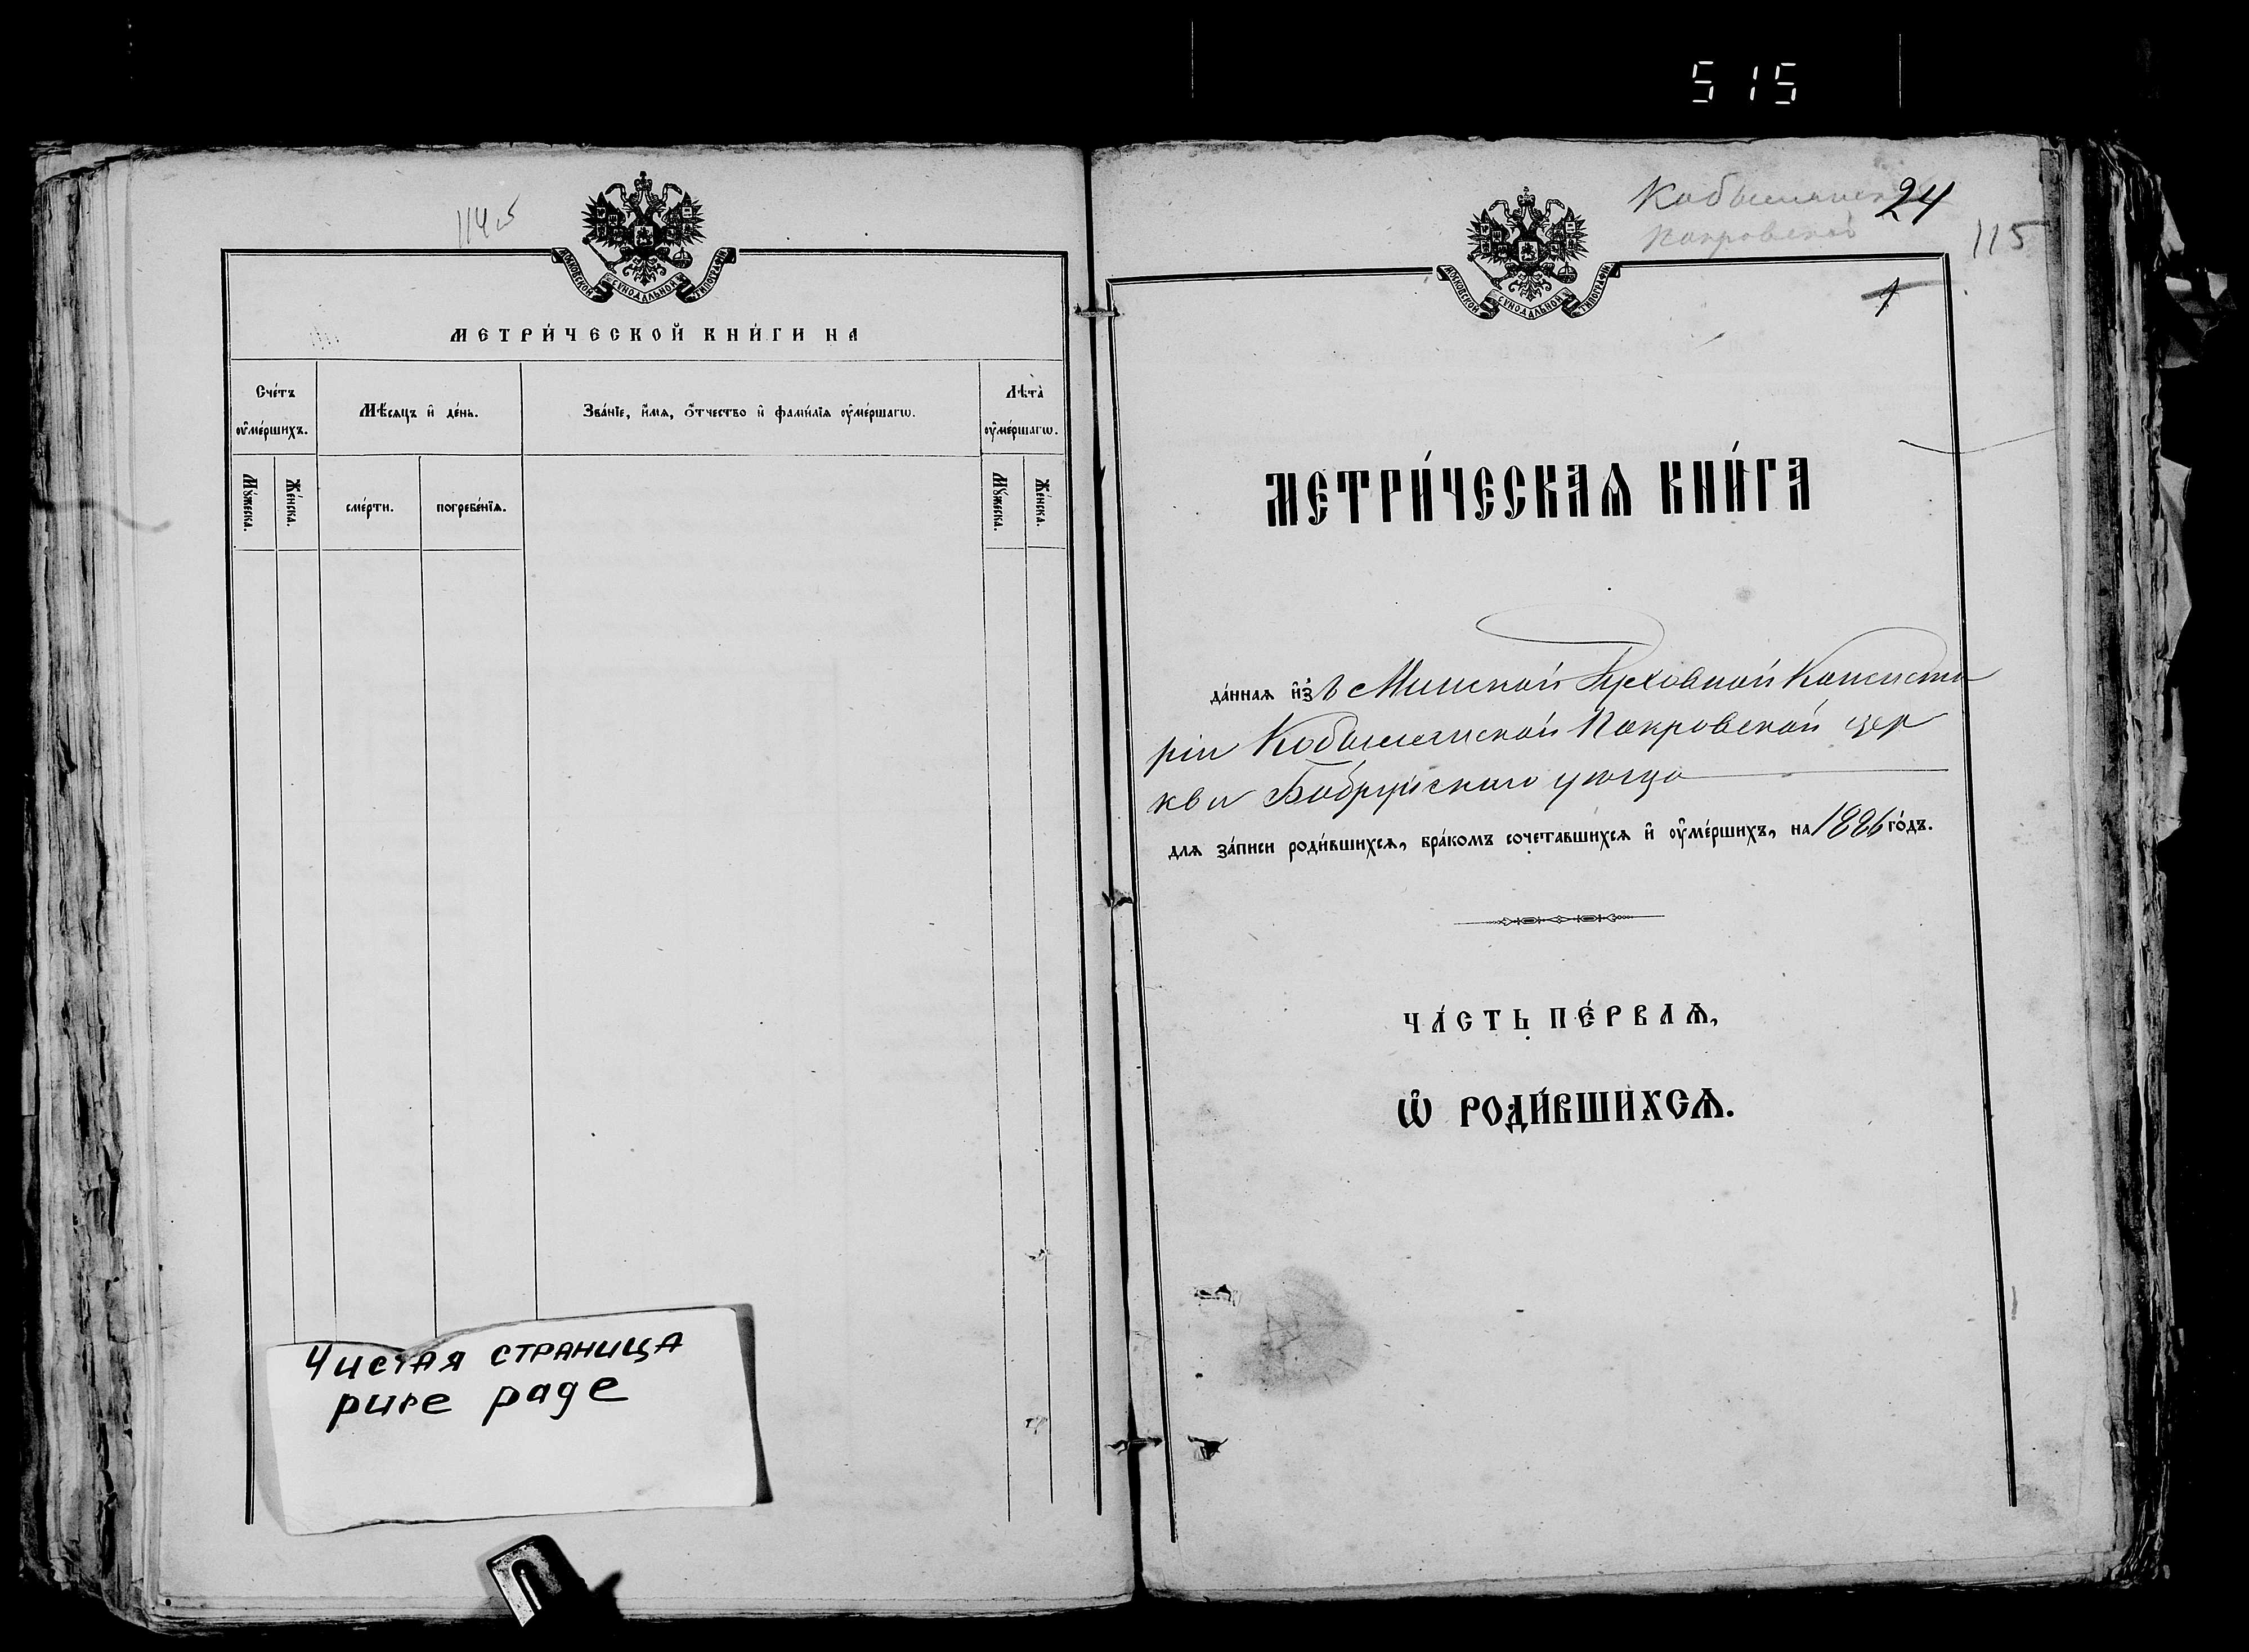 515
114об
МОСКОВСКОЙ СѴНОДАЛЬНОЙ ТИПОГРАФІИ
МЕТРИ́ЧЕСКОЙ КНИ́ГИ НА
Сче́тъ ᲂу҆ме́ршихъ.
Мѣ́сяцъ и҆ де́нь.
Зва́нїе, и҆́мѧ, ѻ҆́тчество и҆ фами́лїѧ ᲂу҆ме́ршагѡ.
Лѣта̀ ᲂу҆ме́ршагѡ.
Мꙋ́жеска.
Же́нска.
сме́рти.
погребе́нїѧ.
Мꙋ́жеска.
Же́нска.
Чистая страница
pure page
24
Покровской
115
МОСКОВСКОЙ СѴНОДАЛЬНОЙ ТИПОГРАФІИ
1
МЕТРИ́ЧЕСКАѦ КНИ́ГА
да́ннаѧ и҆з̾ ъ Минской Духовной Консисто
ріи Кобылянской Покровской цер
кви Бобруйскаго уѣзда
для за́писи роди́вшихсѧ, бра́комъ сочетавшихсѧ и҆ ᲂу҆ме́ршихъ, на 1886 го́дъ.
ЧА́СТЬ ПЕ́РВАѦ,
Ѽ РОДИ́ВШИХСѦ.